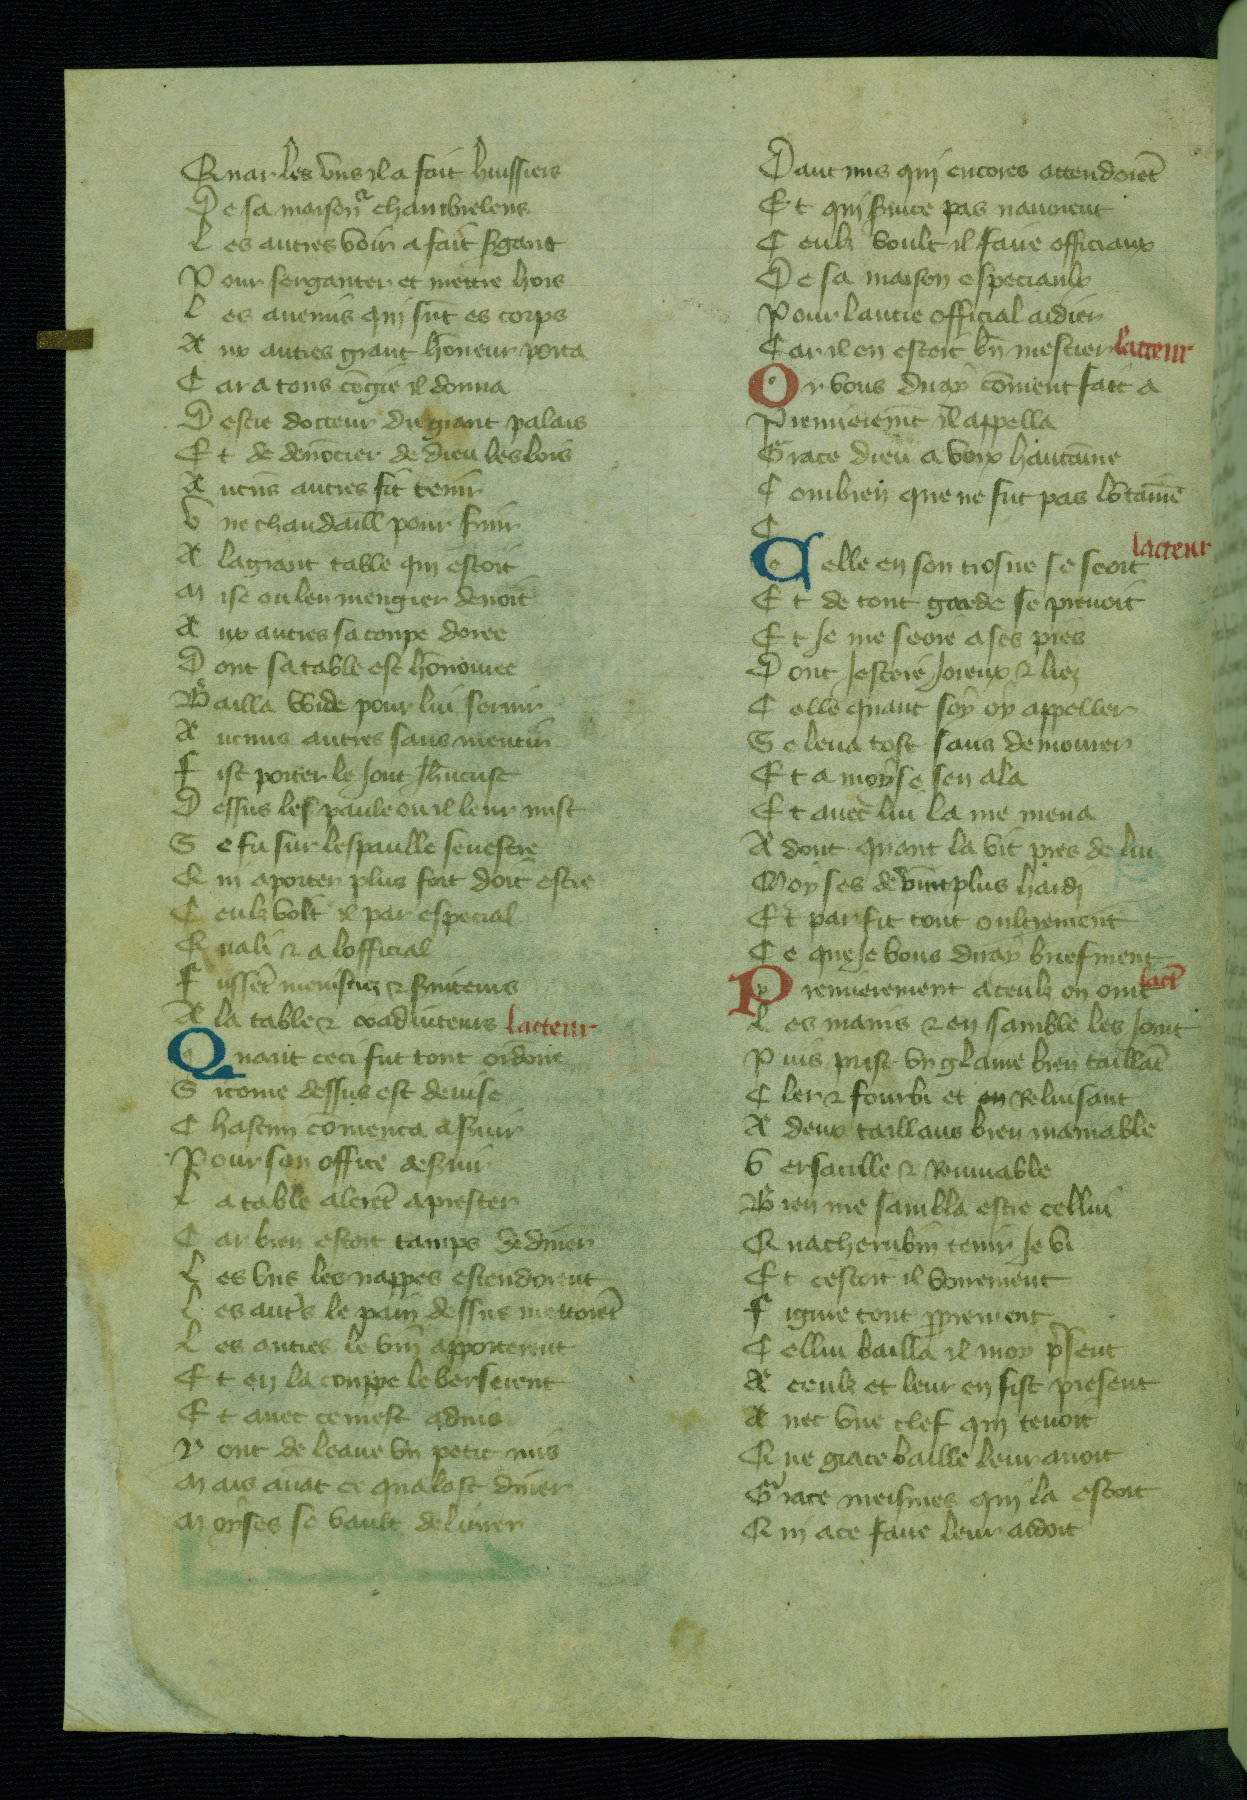 Quar les vns il a fait huissiers
De sa maison chambrelens
Les autres voir a fait sgans
Pour serganter et mettre hors
Les auenus qui sut es corps
Aux autres grant honeur porta
Car a tous cogie il donna
Destre docteur du grant palais
Et de denocier de dieu les lois
Aucuns autres fit tenir
Vne chandaill pour suir
A la grant table qui estoit
Mise ou len mengier deuoit
Aux autres sa coupe doree
Dont sa table est honouree
Bailla wide pour lui seruir
Aucuns autres sans mentir
Fist porter le Jout Jhucrist
Dessus lespaule ou il leur mist
Se fu sur lespaulle senestre
Qui a porter plus fort doit estre
Ceulz volt il par especial
Quali & a lofficial
Fusset menistrez & suiteurs
A la table & coadiuteurs lacteur
Quant ceci fut tout ordone
Sicome dessus est deuise
Chascun comenca a suir
Pour son office desuir
La table aleret aprester
Car bien estoit tamps de diner
Les vns les nappes estendoient
Les autrs le pain dessus mettoiet
Les autres le vin apporterent
Et en la couppe le verserent
Et auec ce mest aduis
Y ont de leaue vn petit mis
Mais auat ce qualast diner
Moyses se vault deliurer
Daucuns qui encores attendoiet
Et qui suice pas nauoient
Ceulz voult il faire officiaux
De sa maison especiaulx
Pour lautre official aidier
Car il en estoit bn mestier lacteur
Or vous diray coment fait a
Premieremt il appella
Grace dieu a voix hautaine
Combien que ne fut pas lotaine
C
Celle en son trosne se seoit lacteur
Et de tout garde se prenoit
Et Je me seoie a ses pies
Dont Jestoie Joieux & liez
Celle quant soy oy appeller
Se leua tost sans demourer
Et a moyse sen ala
Et auec lui la me mena
A dont quant la vit pres de lui
Moyses deuint plus hardi
Et parfit tout oultrement
Ce que Je vous diray briefment
Premierement a ceulz on oint lact
Les mains & en samble les Joint
Puis prist vn glaiue bien taillat
Cler & fourbi et en Reluisant
A deux taillans bien mainable
Versatille & Remuable
Bien me sambla estre cellui
Qua cherubin tenir Je vi
Et cestoit il voirement
Figure tout pprement
Cellui bailla il moy psent
A ceulz et leur en fist present
Auec vne clef qui tenoit
Que grace baille leur auoit
Grace meismes qui la estoit
Qui a ce faire leur aidoit